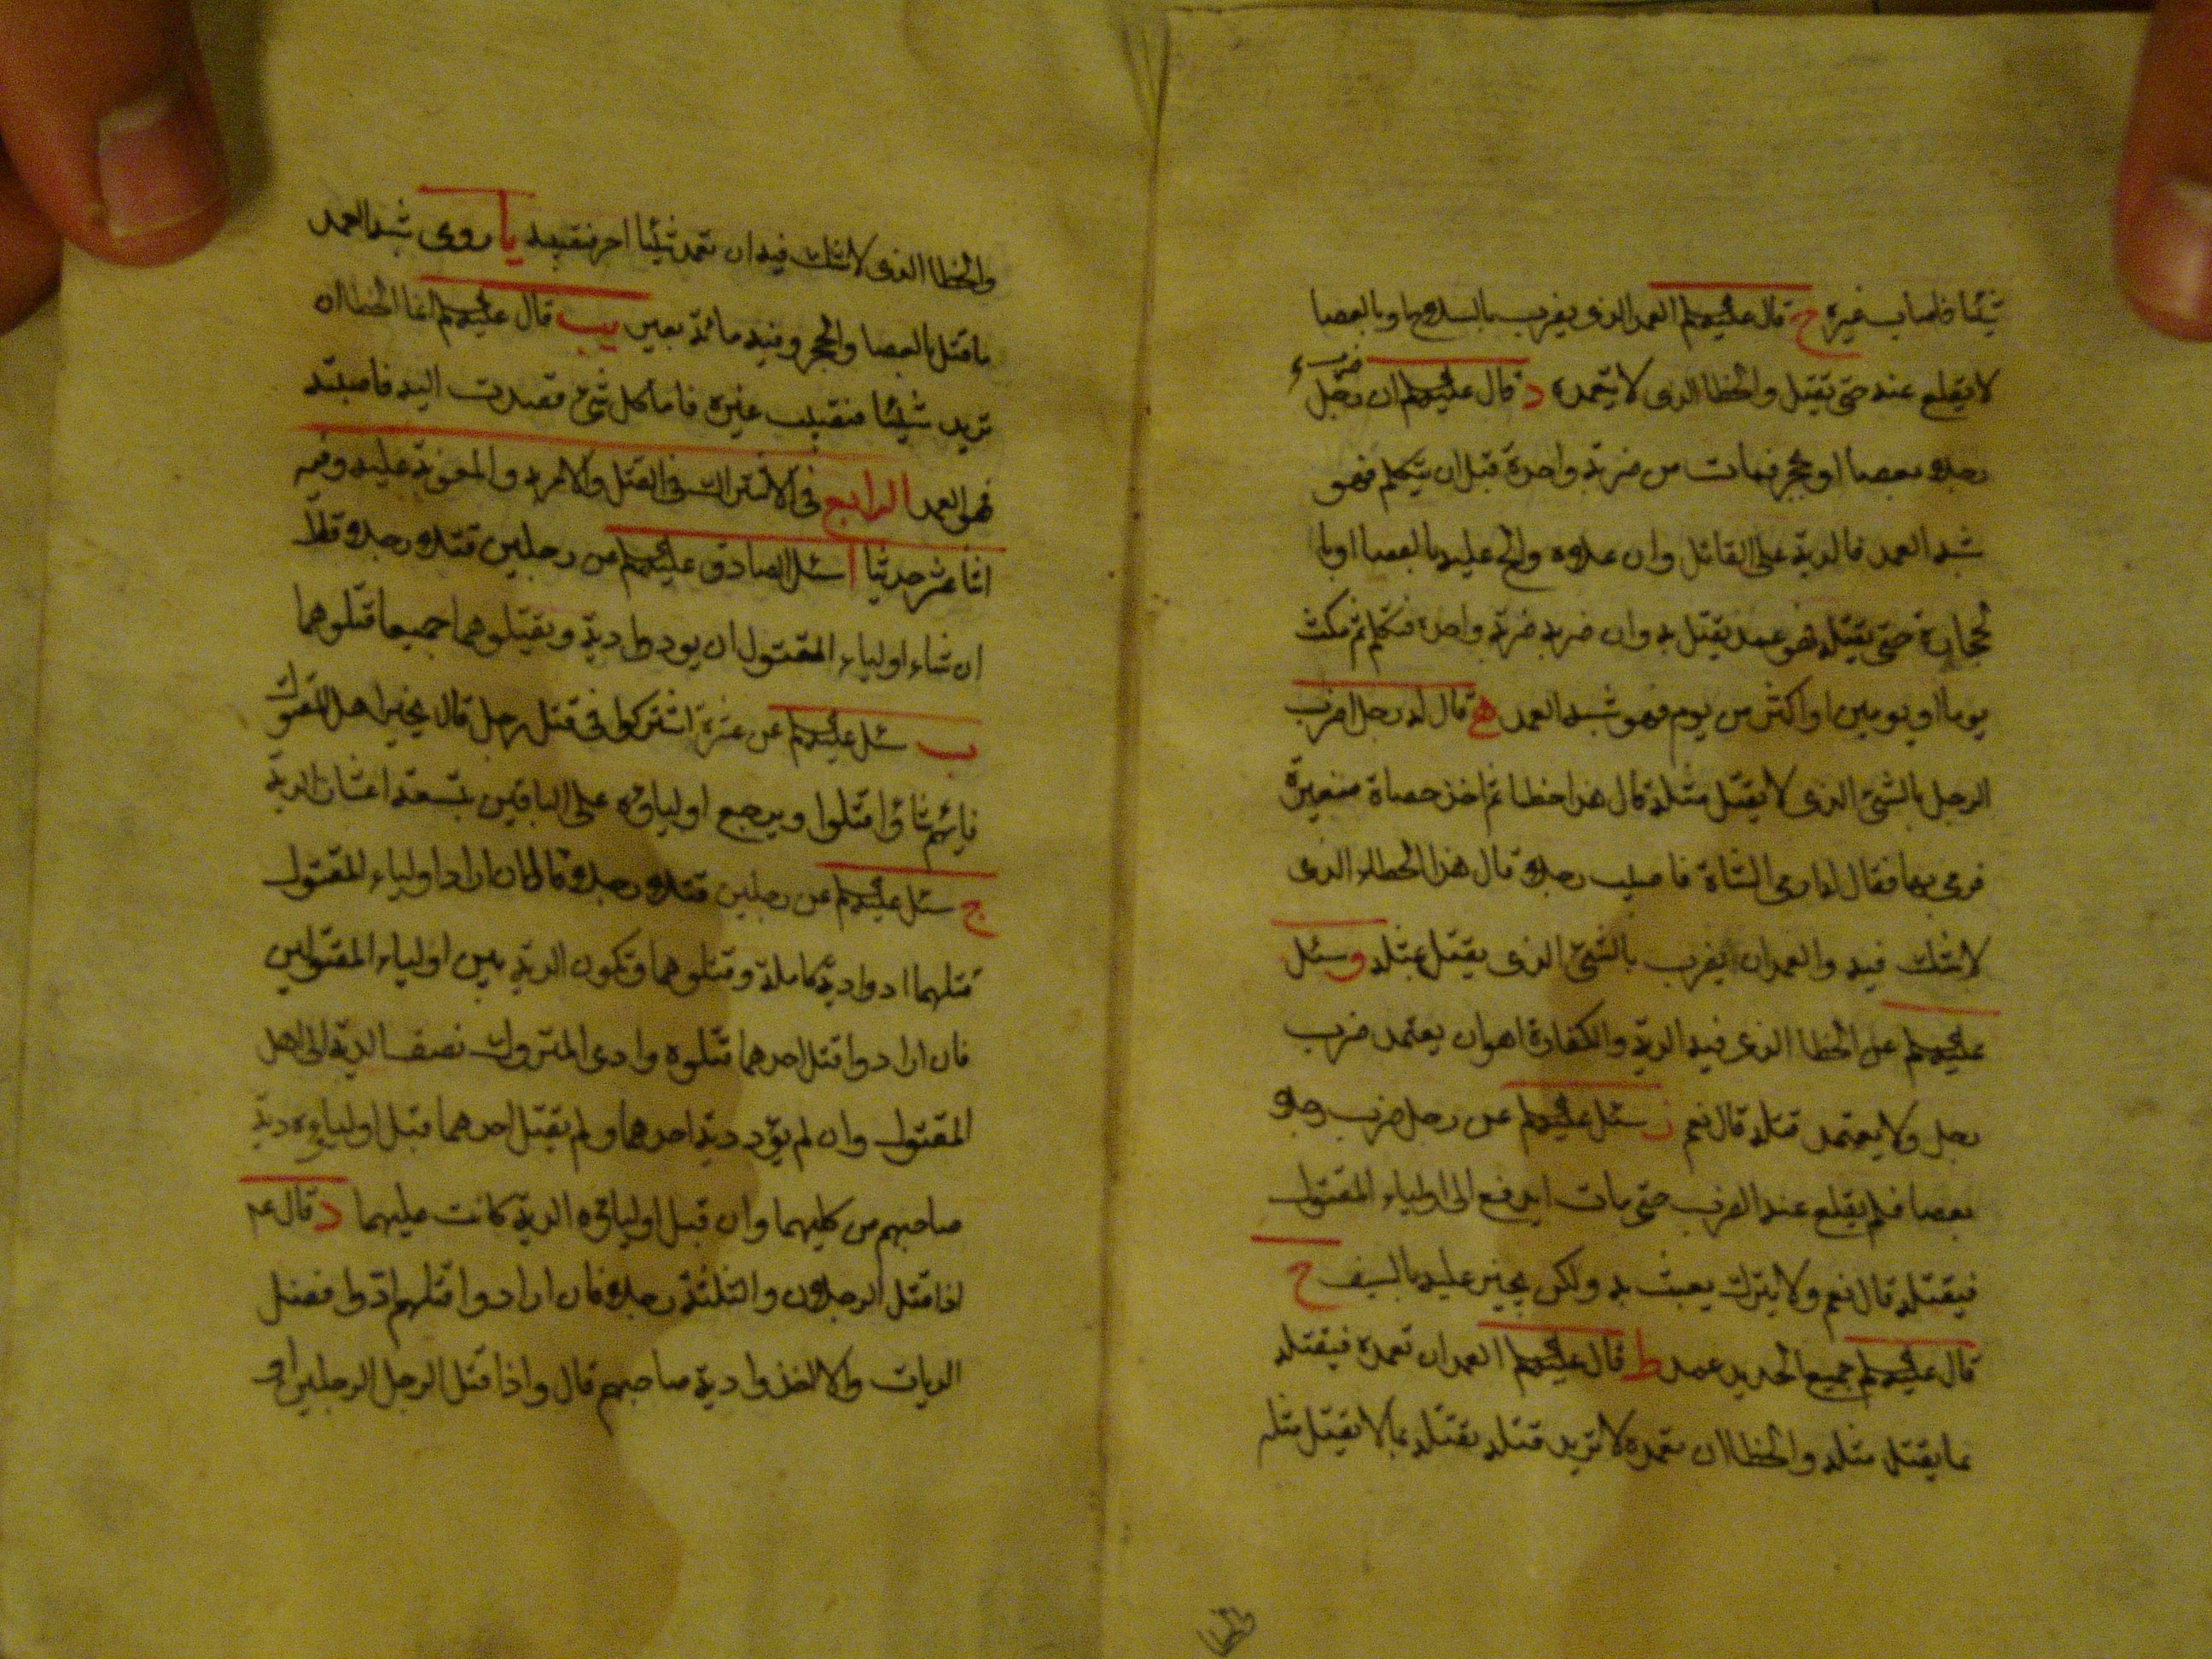 شيئا فاصاب غيره ج قال عليه السلم العمد الذى يضرب بالسلاح او بالعصا
لا يقلع عنه حتى يقتل والخطا الذى لا يتعمده د قال عليه السلم ان ضرب رجل
رجلا بعصا او بحجر فمات من ضربة واحدة قبل ان يتكلم فهو
شبه العمد فالدية على القاتل وان علاه والح عليه بالعصا او با
لحجارة حتى يقتله فهو عمد يقتل به وان ضربه ضربة واحدة فتكلم ثم مكث
يوما او يومين او اكثر من يوم فهو شبه العمد ه قال له رجل اضرب
الرجل بالشئ الذى لا يقتل مثله قال هذا خطا ثم اخذ حصاة صغيرة
فرمى بها فقال له ارمى الشاة فاصيب رجلا قال هذا الخطاء الذى
لا شك فيه والعمد ان يضرب بالشئ الذى يقتل بمثله و سئل
عليه السلم عن الخطا الذى فيه الدية والكفارة اهو ان يعتمد ضرب
رجل ولا يعتمد قتله قال نعم ز سئل عليه السلم عن رجل ضرب رجلا
بعصا فلم يقلع عنه الضرب حتى مات ايدفع الى اولياء المقتول
فيقتله قال نعم ولا يترك يعبث به ولكن يجيز عليه بالسيف ح
قال عليه السلم جميع الحديد عمد ط قال عليه السلم العمد ان تعمده فيقتله
بما يقتل مثله والخطا ان تعمده لا تريد قتله يقتله بما لا يقتل مثله
والخطا الذى لا شك فيه ان تعمد شيئا اخر فتصيبه يا روى شبه العمد
ما قتل بالعصا والحجر وفيه مائة بعير يب قال عليه السلم انما الخطا ان
تريد شيئا فتصيب غيره فاما كل شئ قصدت اليه فاصبته
فهو العمد الرابع فى الاشتراك فى القتل والامر به والمعونة عليه وفيه
اثنا عشر حديثا ا سئل الصادق عليه السلم عن رجلين قتلا رجلا قال
ان شاء اولياء المقتول ان يودوا دية ويقتلوهما جميعا قتلوهما
ب سئل عليه السلم عن عشرة اشتركوا فى قتل رجل قال يخير اهل المقتول
فايهم شاؤا قتلوا ويرجع اولياؤه على الباقين بتسعة اعشار الدية
ج سئل عليه السلم عن رجلين قتلا رجلا قال ان اراد اولياء المقتول
قتلهما ادوا دية كاملة وقتلوهما وتكون الدية بين اولياء المقتولين
فان ارادوا قتل احدهما قتلوه وادى المتروك نصف الدية الى اهل
المقتول وان لم يؤد دية احدهما ولم يقتل احدهما قبل اولياؤه دية
صاحبهم من كليهما وان قبل اولياؤه الدية كانت عليهما د قال عم
اذا قتل الرجلان والثلثة رجلا فان ارادوا قتلهم ادوا فضل
الديات والا اخذوا دية صاحبهم قال واذا قتل الرجل الرجلين او